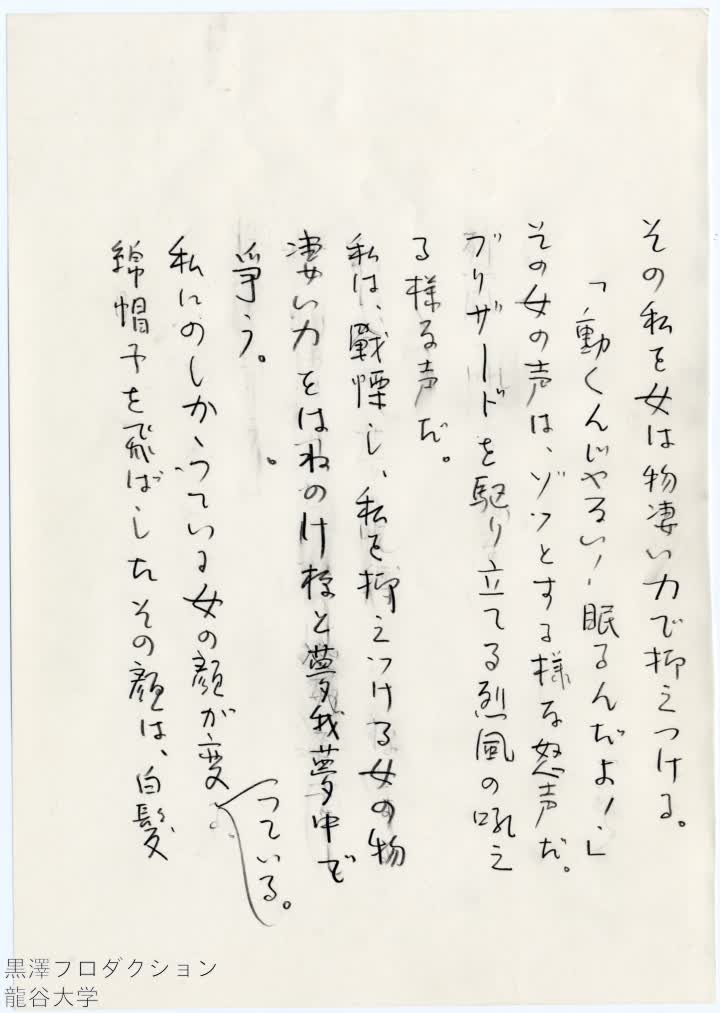 その私を女は物凄い力で抑えつける。
「動くんじゃない！眠るんだよ！」
その女の声は、ゾッとする様な怒声だ。
ブリザードを駆り立てる烈風の吼え
る様な声だ。
私は、戰慄し、私を抑えつける女の物
凄い力をはねのけ様と夢我夢中で
爭う。
私にのしかゝっている女の顔が変っている。
綿帽子を飛ばしたその顔は、白髪
黒澤プロダクション
龍谷大学